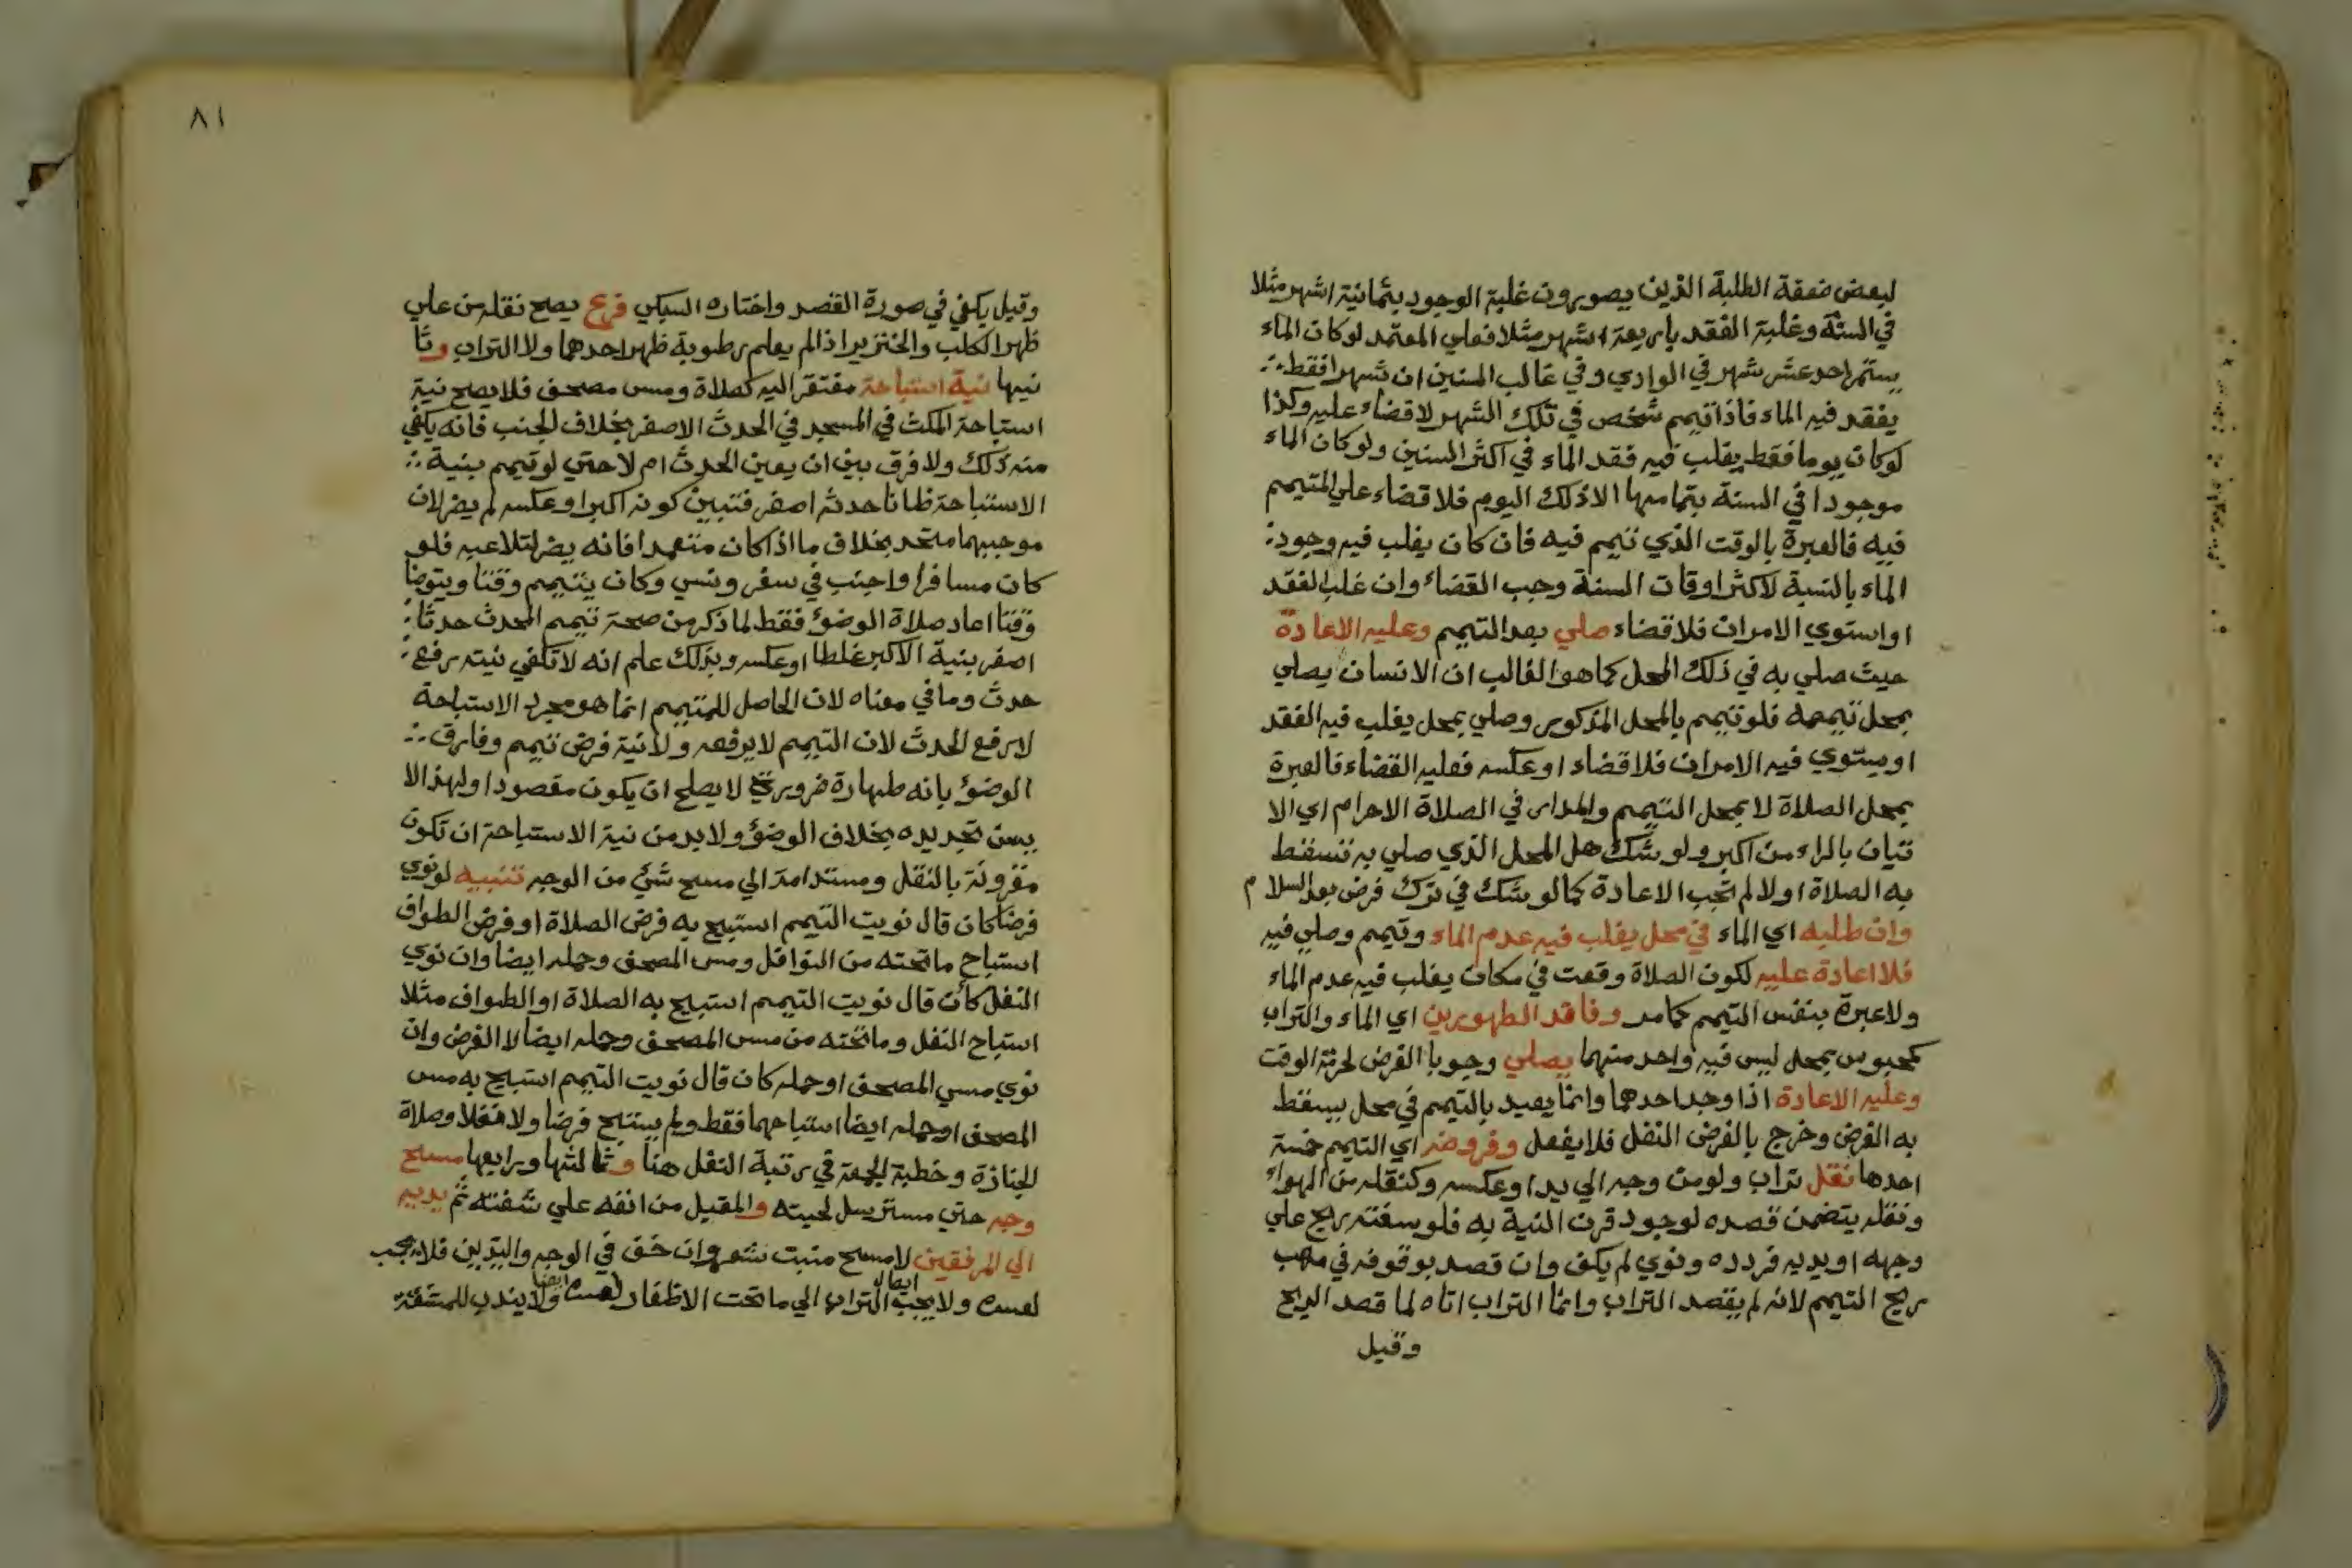 لبعض ضعفة الطلبة الذين يصورون غلبة الوجود بثمانية اشهر مثلا
في السنة وغلبة الفقد باربعة اشهر مثلا فعلي المعتمد لو كان الماء
يستمر احد عشر شهر في الوادي وفي غالب السنين ان شهرا فقط
يفقد فيه الماء فاذا تيمم شخص في تلك الشهر لا قضاء عليه وكذا
لو كان يوما فقط يغلب فيه فقد الماء في اكثر السنين ولو كان الماء
موجودا في السنة بتمامها الا ذلك اليوم فلا قضاء علي المتيمم
فيه فالعبرة بالوقت الذي تيمم فيه فان كان يغلب فيه وجود
الماء بالنسبة لاكثر اوقات السنة وجب القضاء وان غلب الفقد
او استوي الامران فلا قضاء صلي بعد التيمم وعليه الاعادة
حيث صلي به في ذلك المحل كما هو الغالب ان الانسان يصلي
بمحل تيممه فلو تيمم بالمحل المذكور وصلي بمحل يغلب فيه الفقد
او يستوي فيه الامران فلا قضاء او عكسه فعليه القضاء فالعبرة
بمحل الصلاة لا بمحل التيمم والمدار في الصلاة الاحرام اي الا
تيان بالراء من اكبر ولو شك هل المحل الذي صلي به تسقط
به الصلاة اولا لم تجب الاعادة كما لو شك في ترك فرض بعد السلام
وان طلبه اي الماء في محل يغلب فيه عدم الماء وتيمم وصلي فيه
فلا اعادة عليه لكون الصلاة وقعت في مكان يغلب فيه عدم الماء
ولا عبرة بنفس التيمم كما مر وفاقد الطهورين اي الماء والتراب
كمحبوس بمحل ليس فيه واحد منهما يصلي وجوبا الفرض لحرمة الوقت
وعليه الاعادة اذا وجد احدهما وانما يعيد بالتيمم في محل يسقط
به الفرض وخرج بالفرض النفل فلا يفعل وفروضه اي التيمم خمسة
احدها نقل تراب ولو من وجه الي يد او عكسه وكنقله من الهواء
ونقله يتضمن قصده لوجود قرن النية به فلو سفته ريح علي
وجهه او يديه فردده ونوي لم يكف وان قصد بوقوفه في مهب
ريح التيمم لانه لم يقصد التراب وانما التراب اتاه لما قصد الريح
وقيل
٨١
وقيل يكفي في صورة القصد واختاره السبكي فرع يصح نقله من علي
ظهر الكلب والخنزير اذا لم يعلم رطوبة ظهر احدهما ولا التراب وثا
نيها نية استباحة مفتقر اليه كصلاة ومس مصحف فلا يصح نية
استباحة المكث في المسجد في الحدث الاصغر بخلاف الجنب فانه يكفي
منه ذلك ولا فرق بين ان يعين الحدث ام لا حتي لو تيمم بنية
الاستباحة ظانا حدثه اصغر فتبين كونه اكبر او عكسه لم يضر لان
موجبهما متحد بخلاف ما اذا كان متعمدا فانه يضر لتلاعبه فلو
كان مسافرا واجنب في سفر ونسي وكان يتيمم وقتا ويتوضا
وقتا اعاد صلاة الوضؤ فقط لما ذكر من صحة تيمم المحدث حدثا
اصغر بنية الاكبر غلطا او عكسه وبذلك علم انه لا تكفي نيته رفع
حدث وما في معناه لان الحاصل للمتيمم انما هو مجرد الاستباحة
لا رفع الحدث لان التيمم لا يرفعه ولا نية فرض تيمم وفارق
الوضؤ بانه طهارة ضرورية لا يصلح ان يكون مقصودا ولهذا لا
يسن تجديده بخلاف الوضؤ ولا بد من نية الاستباحة ان تكون
مقرونة بالنقل ومستدامة الي مسح شئ من الوجه تنبيه لو نوي
فرضا كان قال نويت التيمم استبيح به فرض الصلاة او فرض الطواف
استباح ما تحته من النوافل ومس المصحف وحمله ايضا وان نوي
النفل كأن قال نويت التيمم استبيح به الصلاة او الطواف مثلا
استباح النفل وما تحته من مس المصحف وحمله ايضا لا الفرض وان
نوي مس المصحف او حمله كان قال نويت التيمم استبيح به مس
المصحف او حمله ايضا استباحهما فقط ولم يستبح فرضا ولا نفلا وصلاة
الجنازة وخطبة الجمعة في رتبة النفل هنا وثالثها ورابعها مسح
وجه حتي مسترسل لحيته والمقبل من انفه علي شفته ثم يديه
الي المرفقين لا مسح منبت شعر وان خف في الوجه واليدين فلا يجب
ولا يجب ايصال التراب الي ما تحت الاظفار ايضا ولا يندب للمشقة